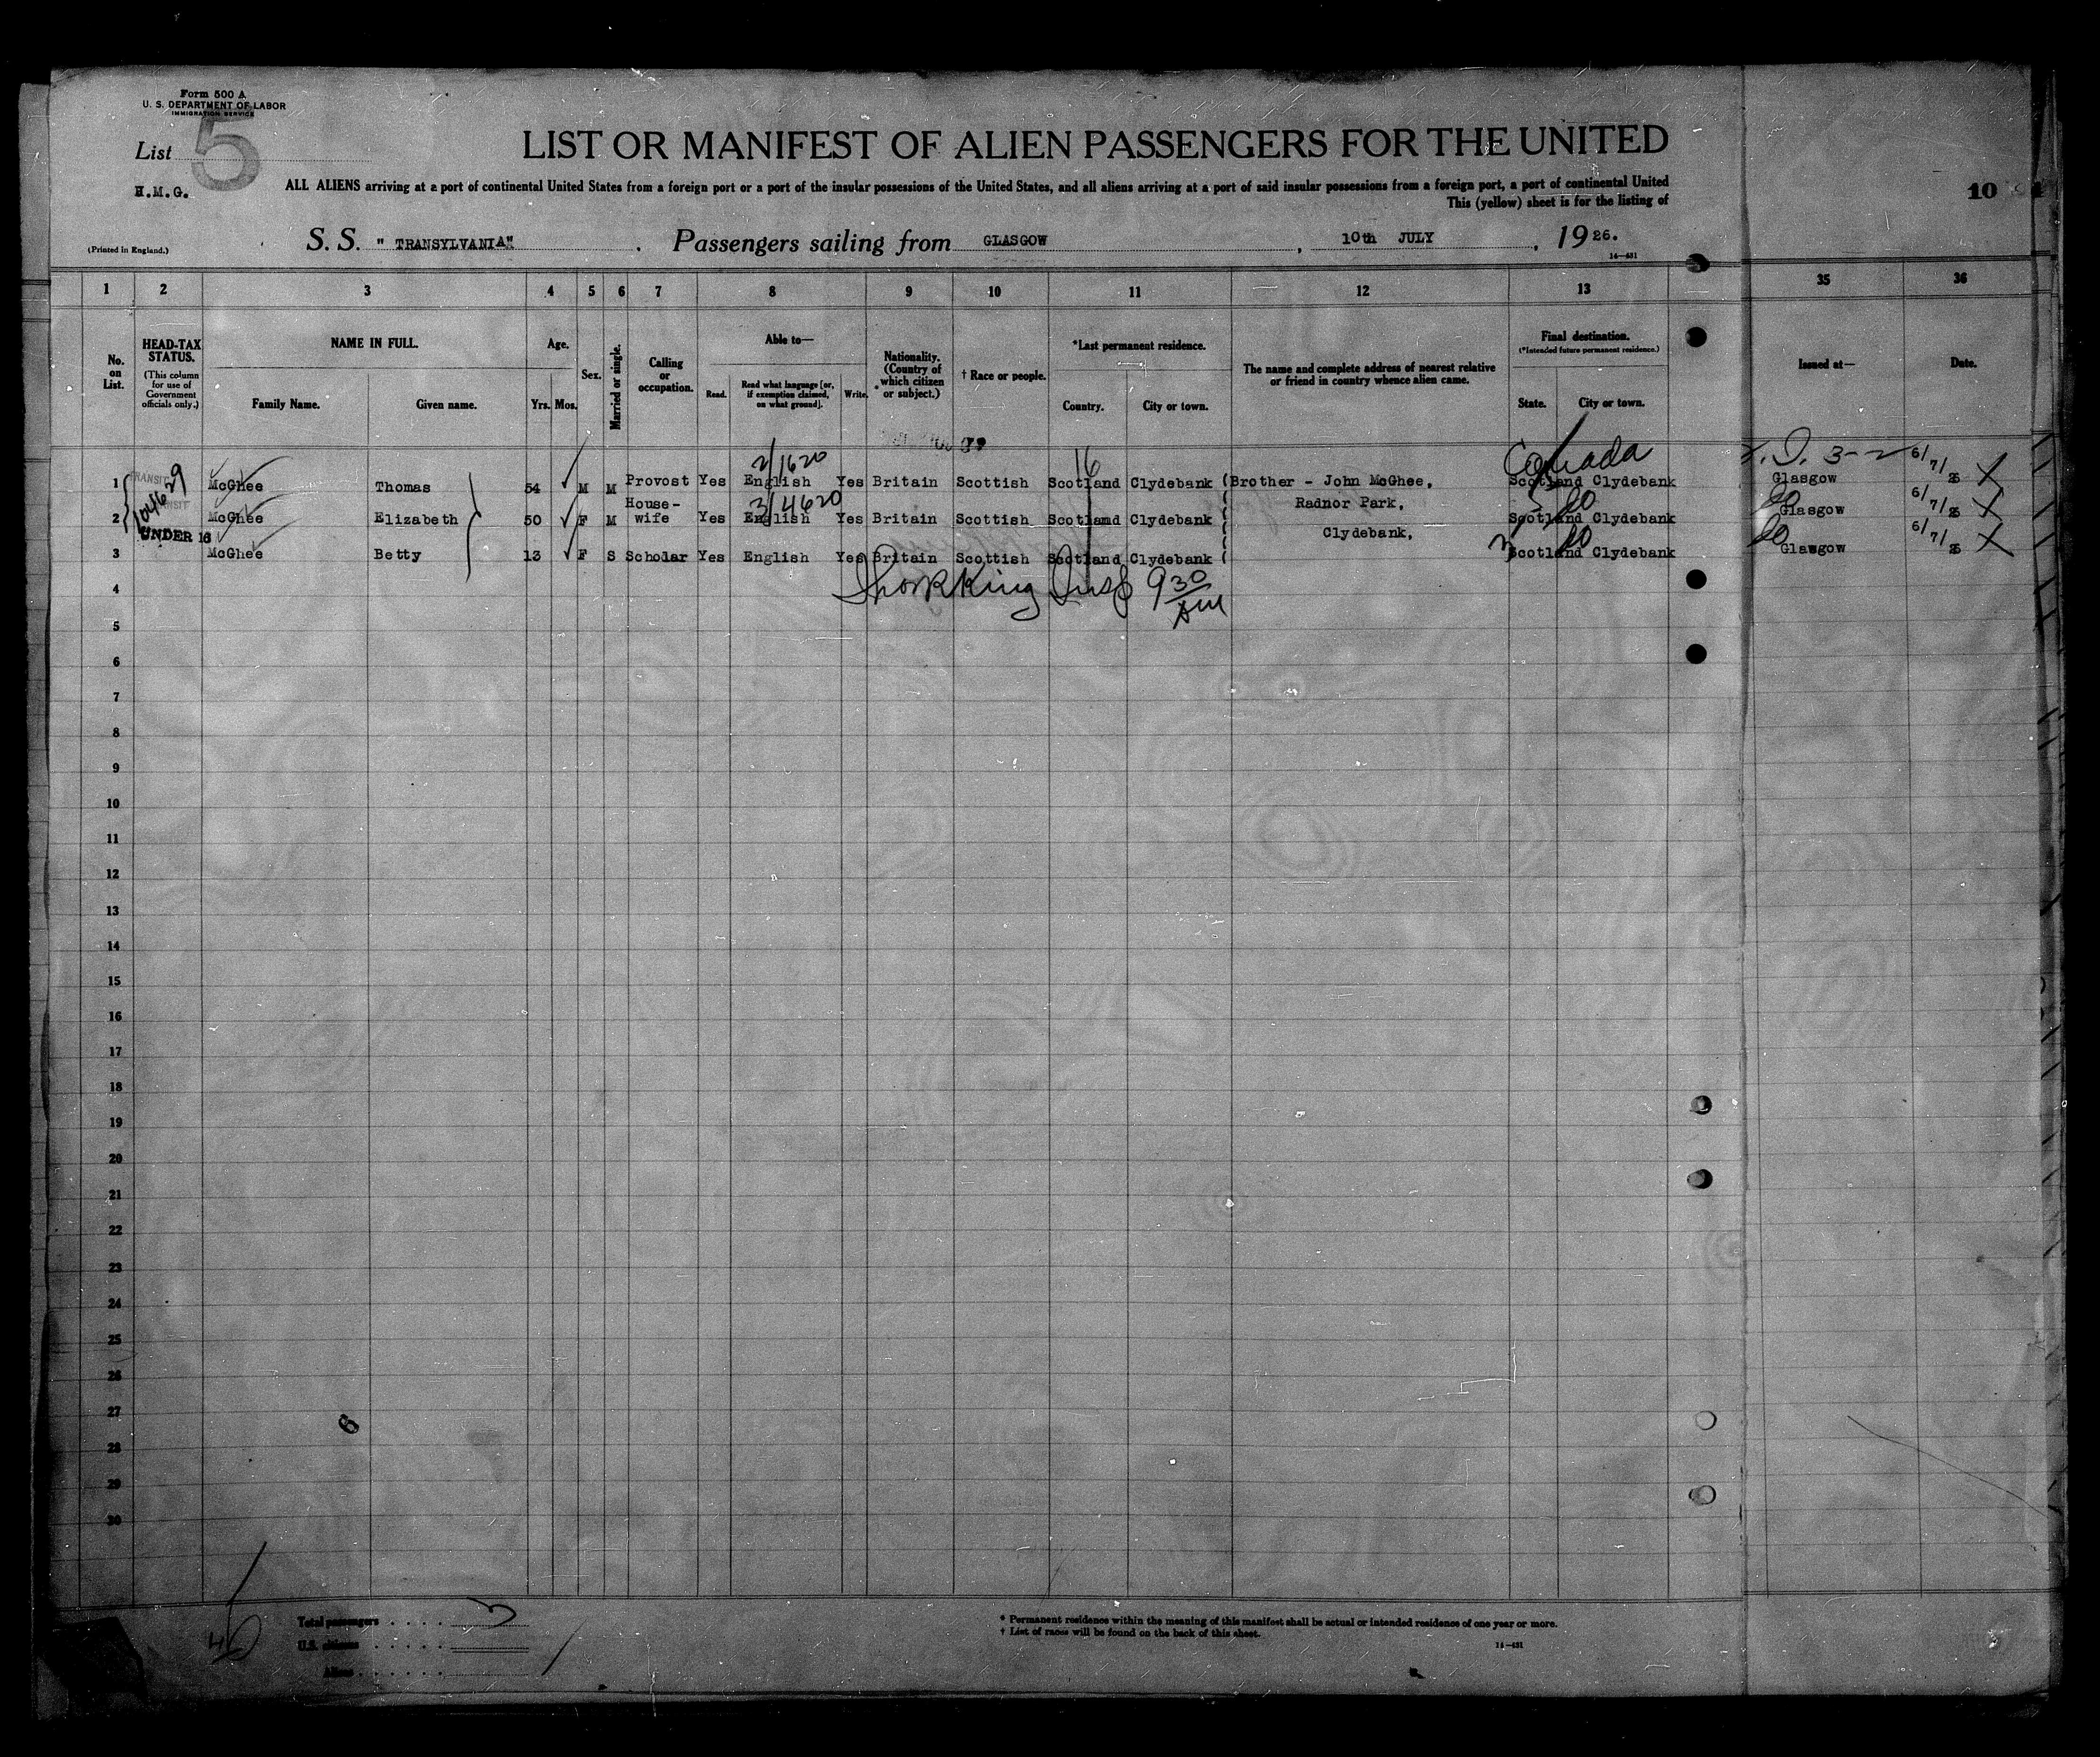 Form 500 A
U. S. DEPARTMENT OF LABOR
IMMIGRATION SERVICE
List 5
H.M.G.
LIST OR MANIFEST OF ALIEN PASSENGERS FOR THE UNITED
ALL ALIENS arriving at a port of continental United States from a foreign port or a port of the insular possessions of the United States, and all aliens arriving at a port of said insular possessions from a foreign port, a port of continental United
This (yellow) sheet is for the listing of
10
(Printed in England.)
S. S. " TRANSYLVANIA" . Passengers sailing from GLASGOW , 10th JULY , 19 26.
14—431
1 2 3 4 5 6 7 8 9 10 11 12 13 35 36
No. on List.
HEAD-TAX STATUS.
(This column for use of Government officials only.)
NAME IN FULL.
Family Name. Given name.
Age.
Yrs. Mos.
Sex.
Married or single.
Calling or occupation.
Able to—
Read. Read what language [or, if exemption claimed, on what ground]. Write.
Nationality. (Country of which citizen or subject.)
† Race or people.
*Last permanent residence.
Country. City or town.
The name and complete address of nearest relative or friend in country whence alien came.
Final destination.
(*Intended future permanent residence.)
State. City or town.
Issued at—
Date.
2/1620 16 Canada
1 TRANSIT McGhee Thomas 54 M M Provost Yes English Yes Britain Scottish Scotland Clydebank (Brother - John McGhee, Scotland Clydebank Glasgow 6/7/26 X
3/4620 Radnor Park, do
2 McGhee Elizabeth 50 F M House-wife Yes English Yes Britain Scottish Scotland Clydebank Scotland Clydebank do Glasgow 6/7/26 X
UNDER 16 Clydebank, do
3 McGhee Betty 13 F S Scholar Yes English Yes Britain Scottish Scotland Clydebank ( Scotland Clydebank do Glasgow 6/7/26 X
King Insp 9 30 AM
4
5
6
7
8
9
10
11
12
13
14
15
16
17
18
19
20
21
22
23
24
25
26
27
28
29
30
6
Total passengers . . . . 3
U.S. citizens . . . . .
Aliens . . . . . .
* Permanent residence within the meaning of this manifest shall be actual or intended residence of one year or more.
† List of races will be found on the back of this sheet.
14—431